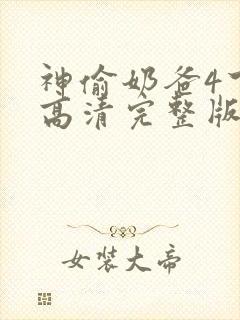 神偷奶爸4
高清完整版
女装大帝